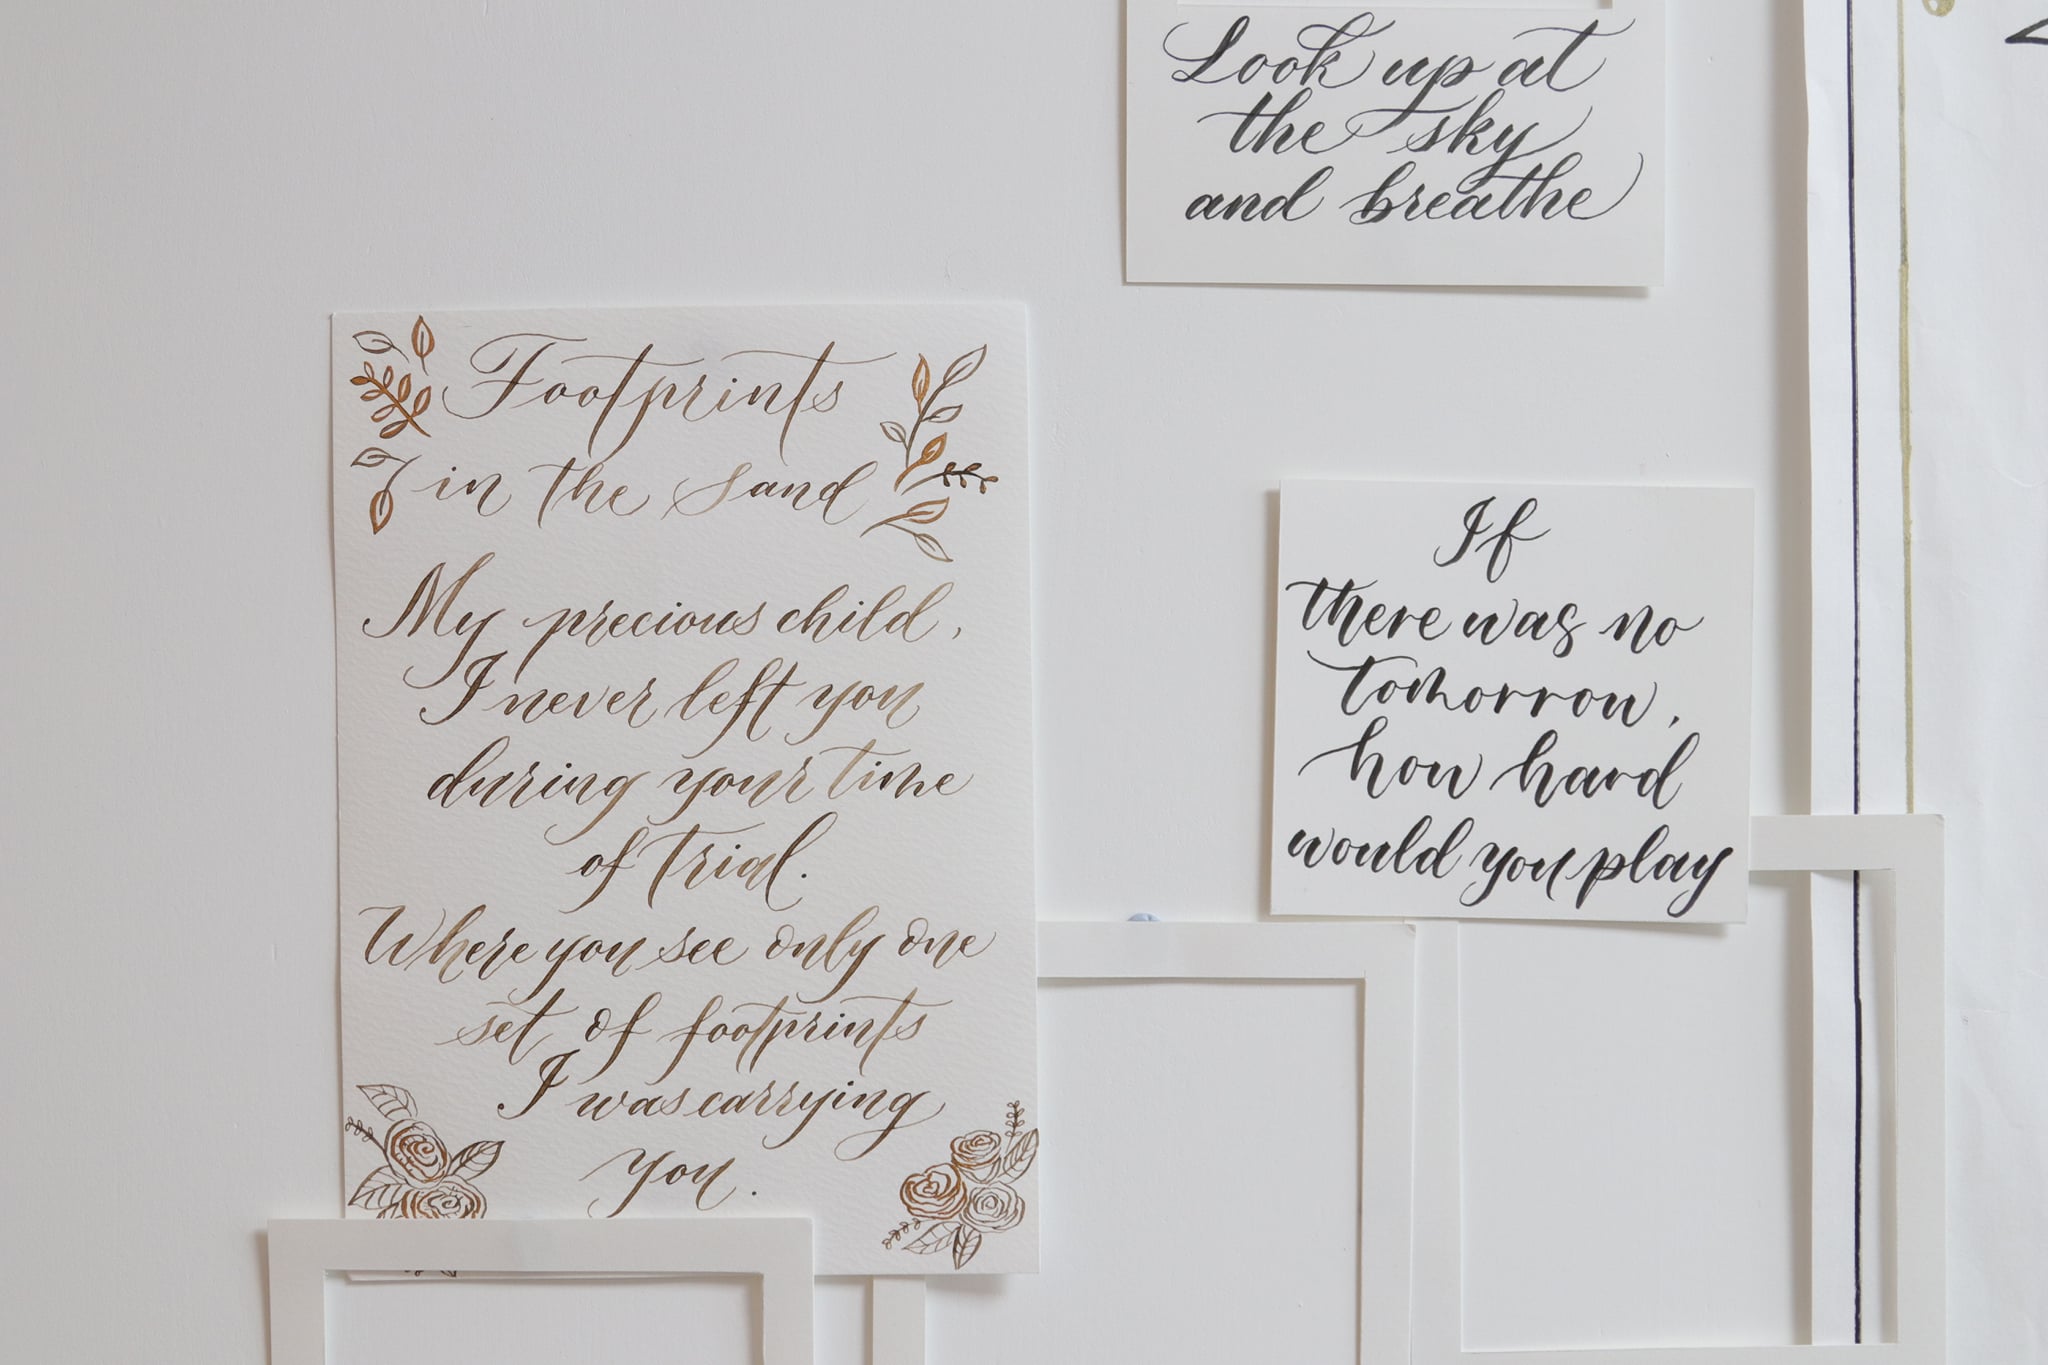 Look up at
the sky
and breathe
Footprints
in the Sand
My precious child,
I never left you
during your time
of trial.
Where you see only one
set of footprints
I was carrying
you.
If
there was no
tomorrow,
how hard
would you play